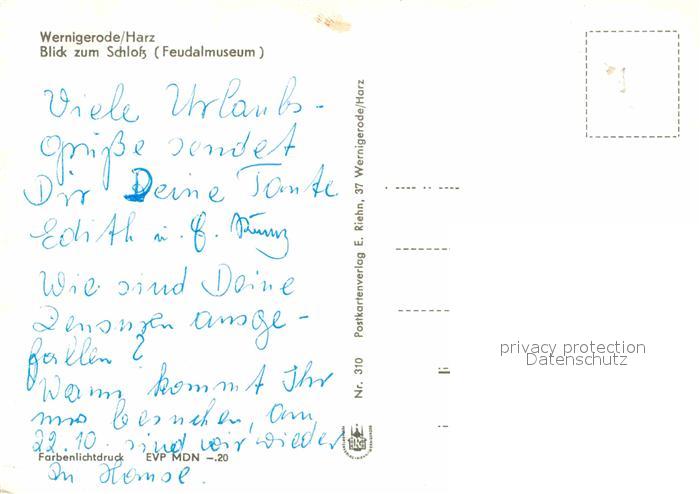 Wernigerode/Harz
Blick zum Schloß (Feudalmuseum)
Viele Urlaubs-
grüße sendet
Dir Deine Tante
Edith u.
Wie sind Deine
Zensuren ausge-
fallen?
Wann kommt Ihr
uns besuchen, am
22.10. sind wir wieder
zu Hause.
Farbenlichtdruck EVP MDN –.20
Nr. 310 Postkartenverlag E. Riehn, 37 Wernigerode/Harz
privacy protection
Datenschutz